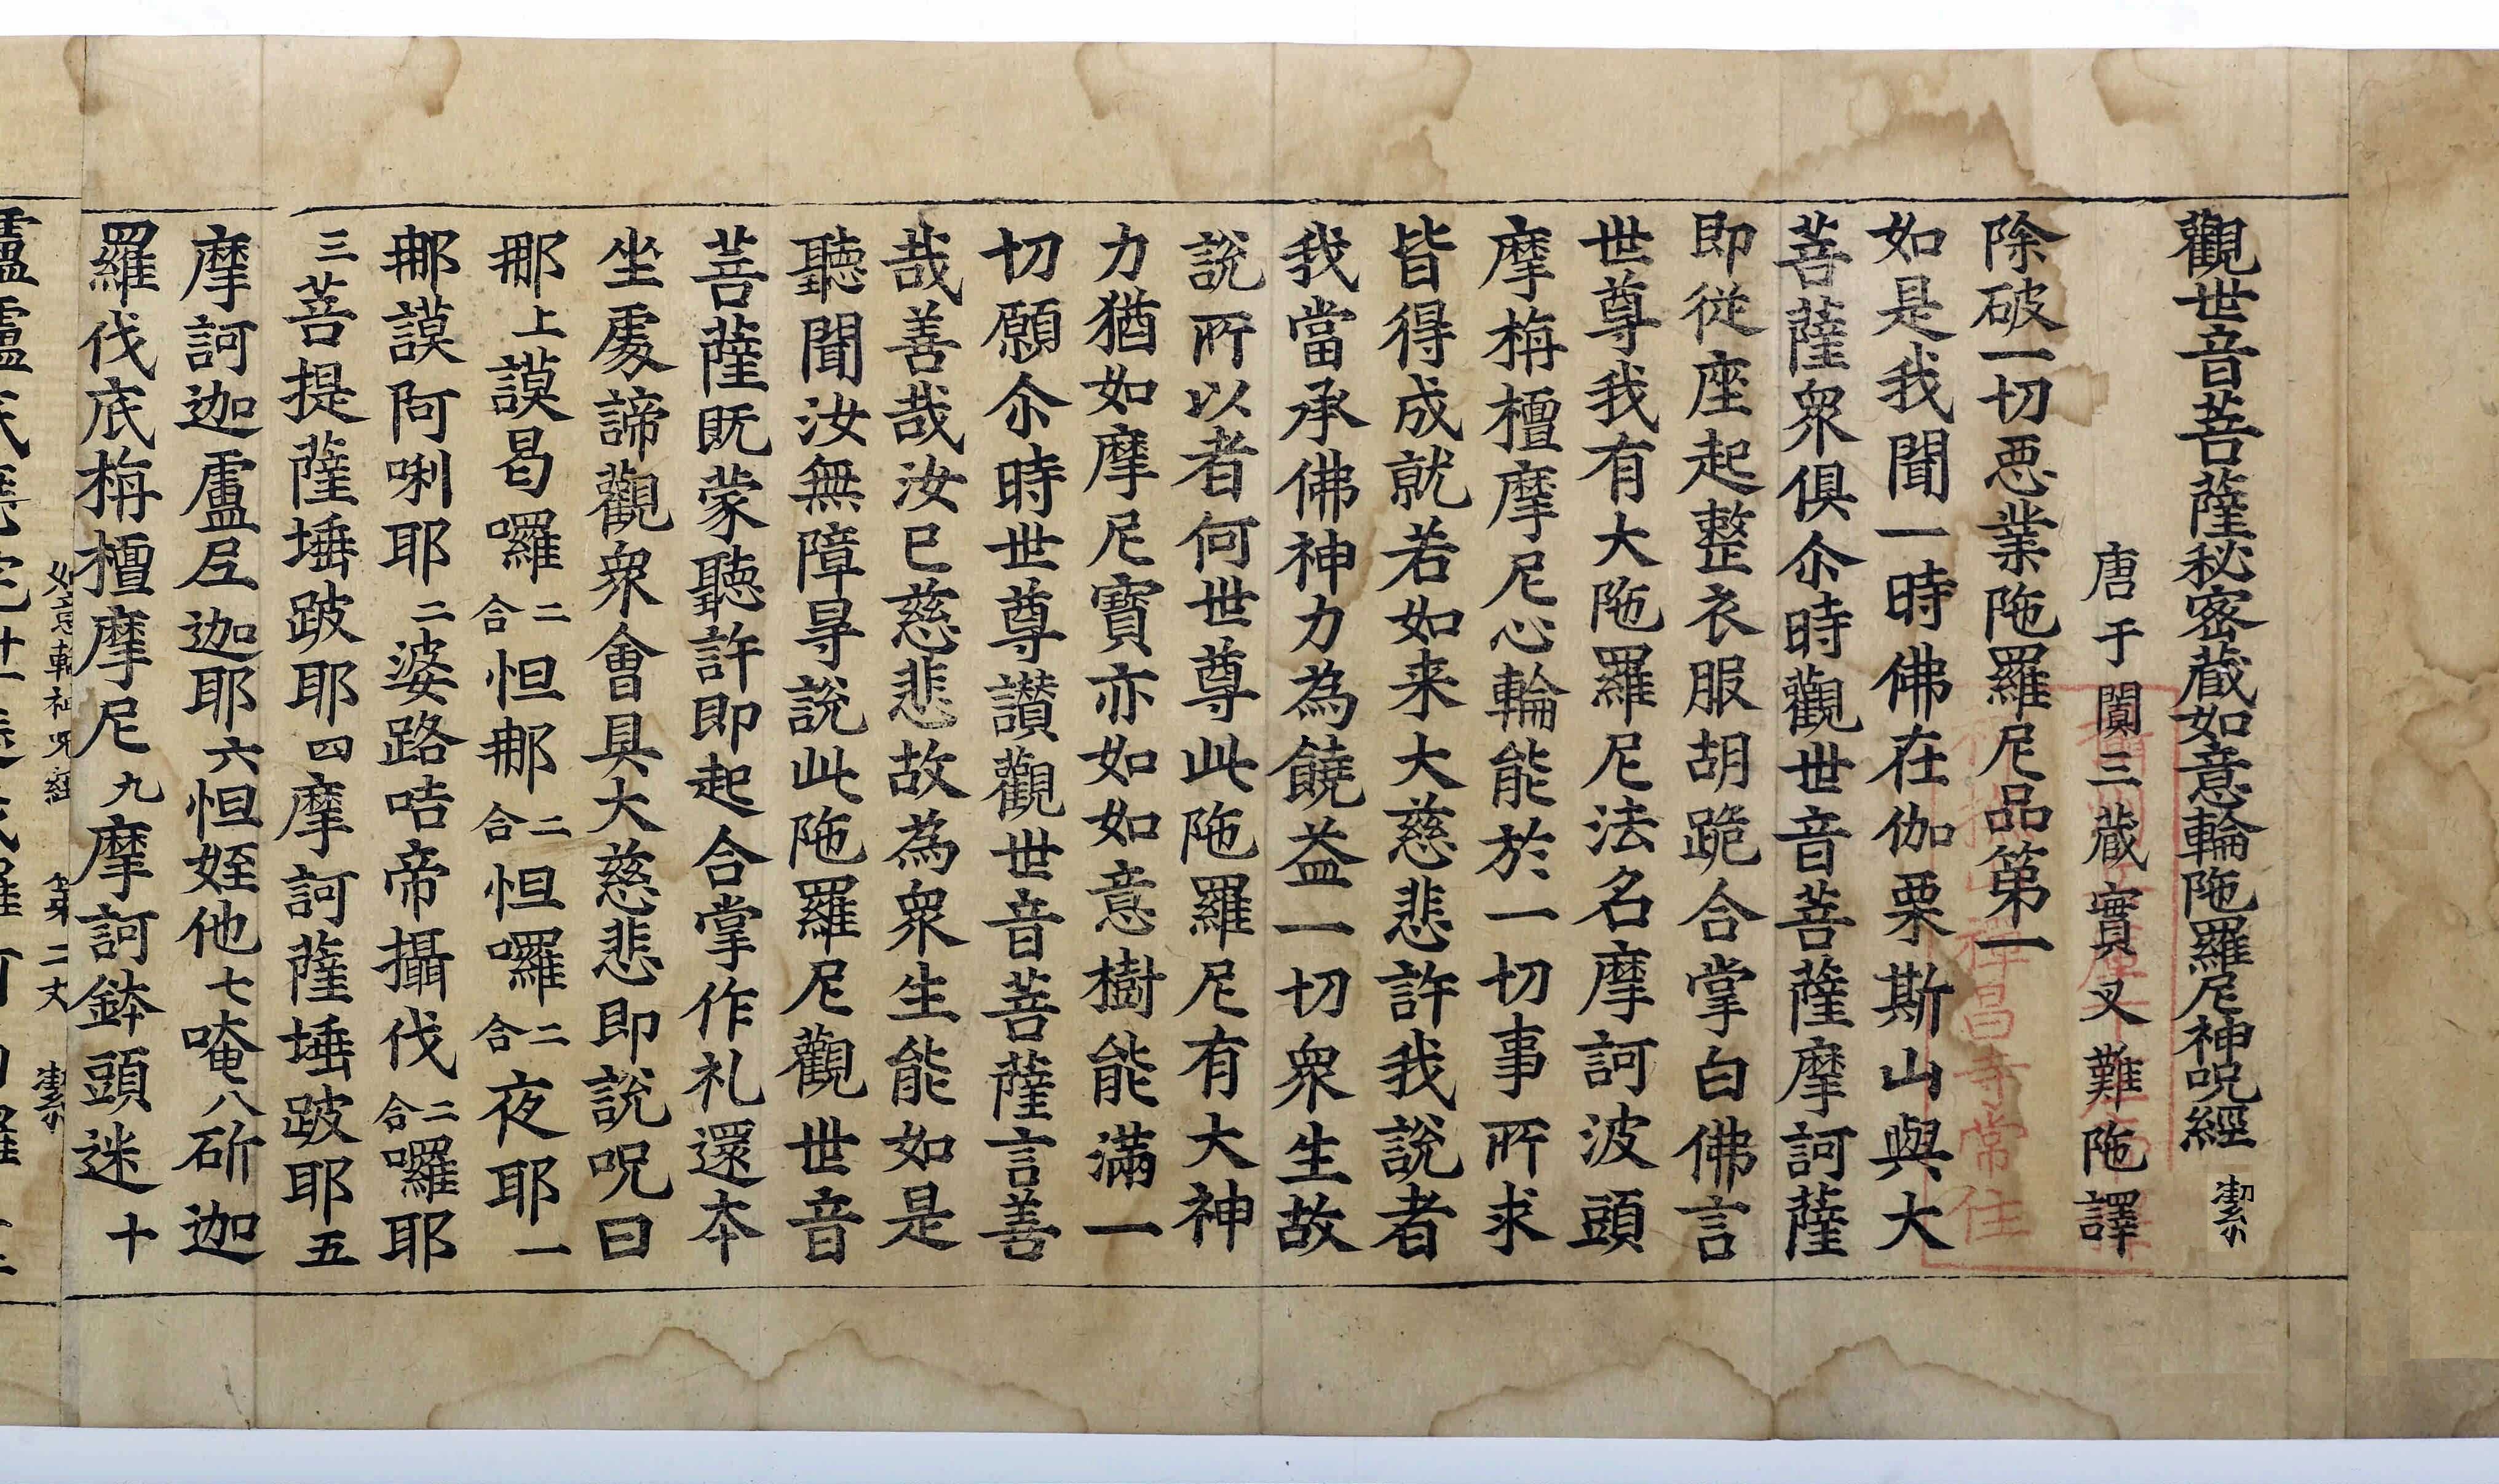 觀世音菩薩秘密蔵如意輪陁羅尼神呪經 潔分
唐于闐三藏實叉難陁譯
除破一切惡業陁羅尼品第一
如是我聞一時佛在伽栗斯山與大
菩薩衆俱尒時觀世音菩薩摩訶薩
即從座起整衣服胡跪合掌白佛言
世尊我有大陁羅尼法名摩訶波頭
摩栴檀摩尼心輪能於一切事所求
皆得成就若如来大慈悲許我說者
我當承佛神力為饒益一切衆生故
說所以者何世尊此陁羅尼有大神
力猶如摩尼寶亦如如意樹能滿一
切願尒時世尊讃觀世音菩薩言善
哉善哉汝已慈悲故為衆生能如是
聽聞汝無障㝵說此陁羅尼觀世音
菩薩既蒙聽許即起合掌作礼還本
坐處諦觀衆會具大慈悲即說呪曰
那上謨曷囉二合怛那二合怛囉二合夜耶一
那謨阿唎耶二婆路咭帝攝伐二合囉耶
三菩提薩埵跛耶四摩訶薩埵跛耶五
摩訶迦盧𡰱迦耶六怛姪他七唵八斫迦
羅伐底栴檀摩尼九摩訶鉢頭迷十
如意輪神呪經 第二丈 潔分